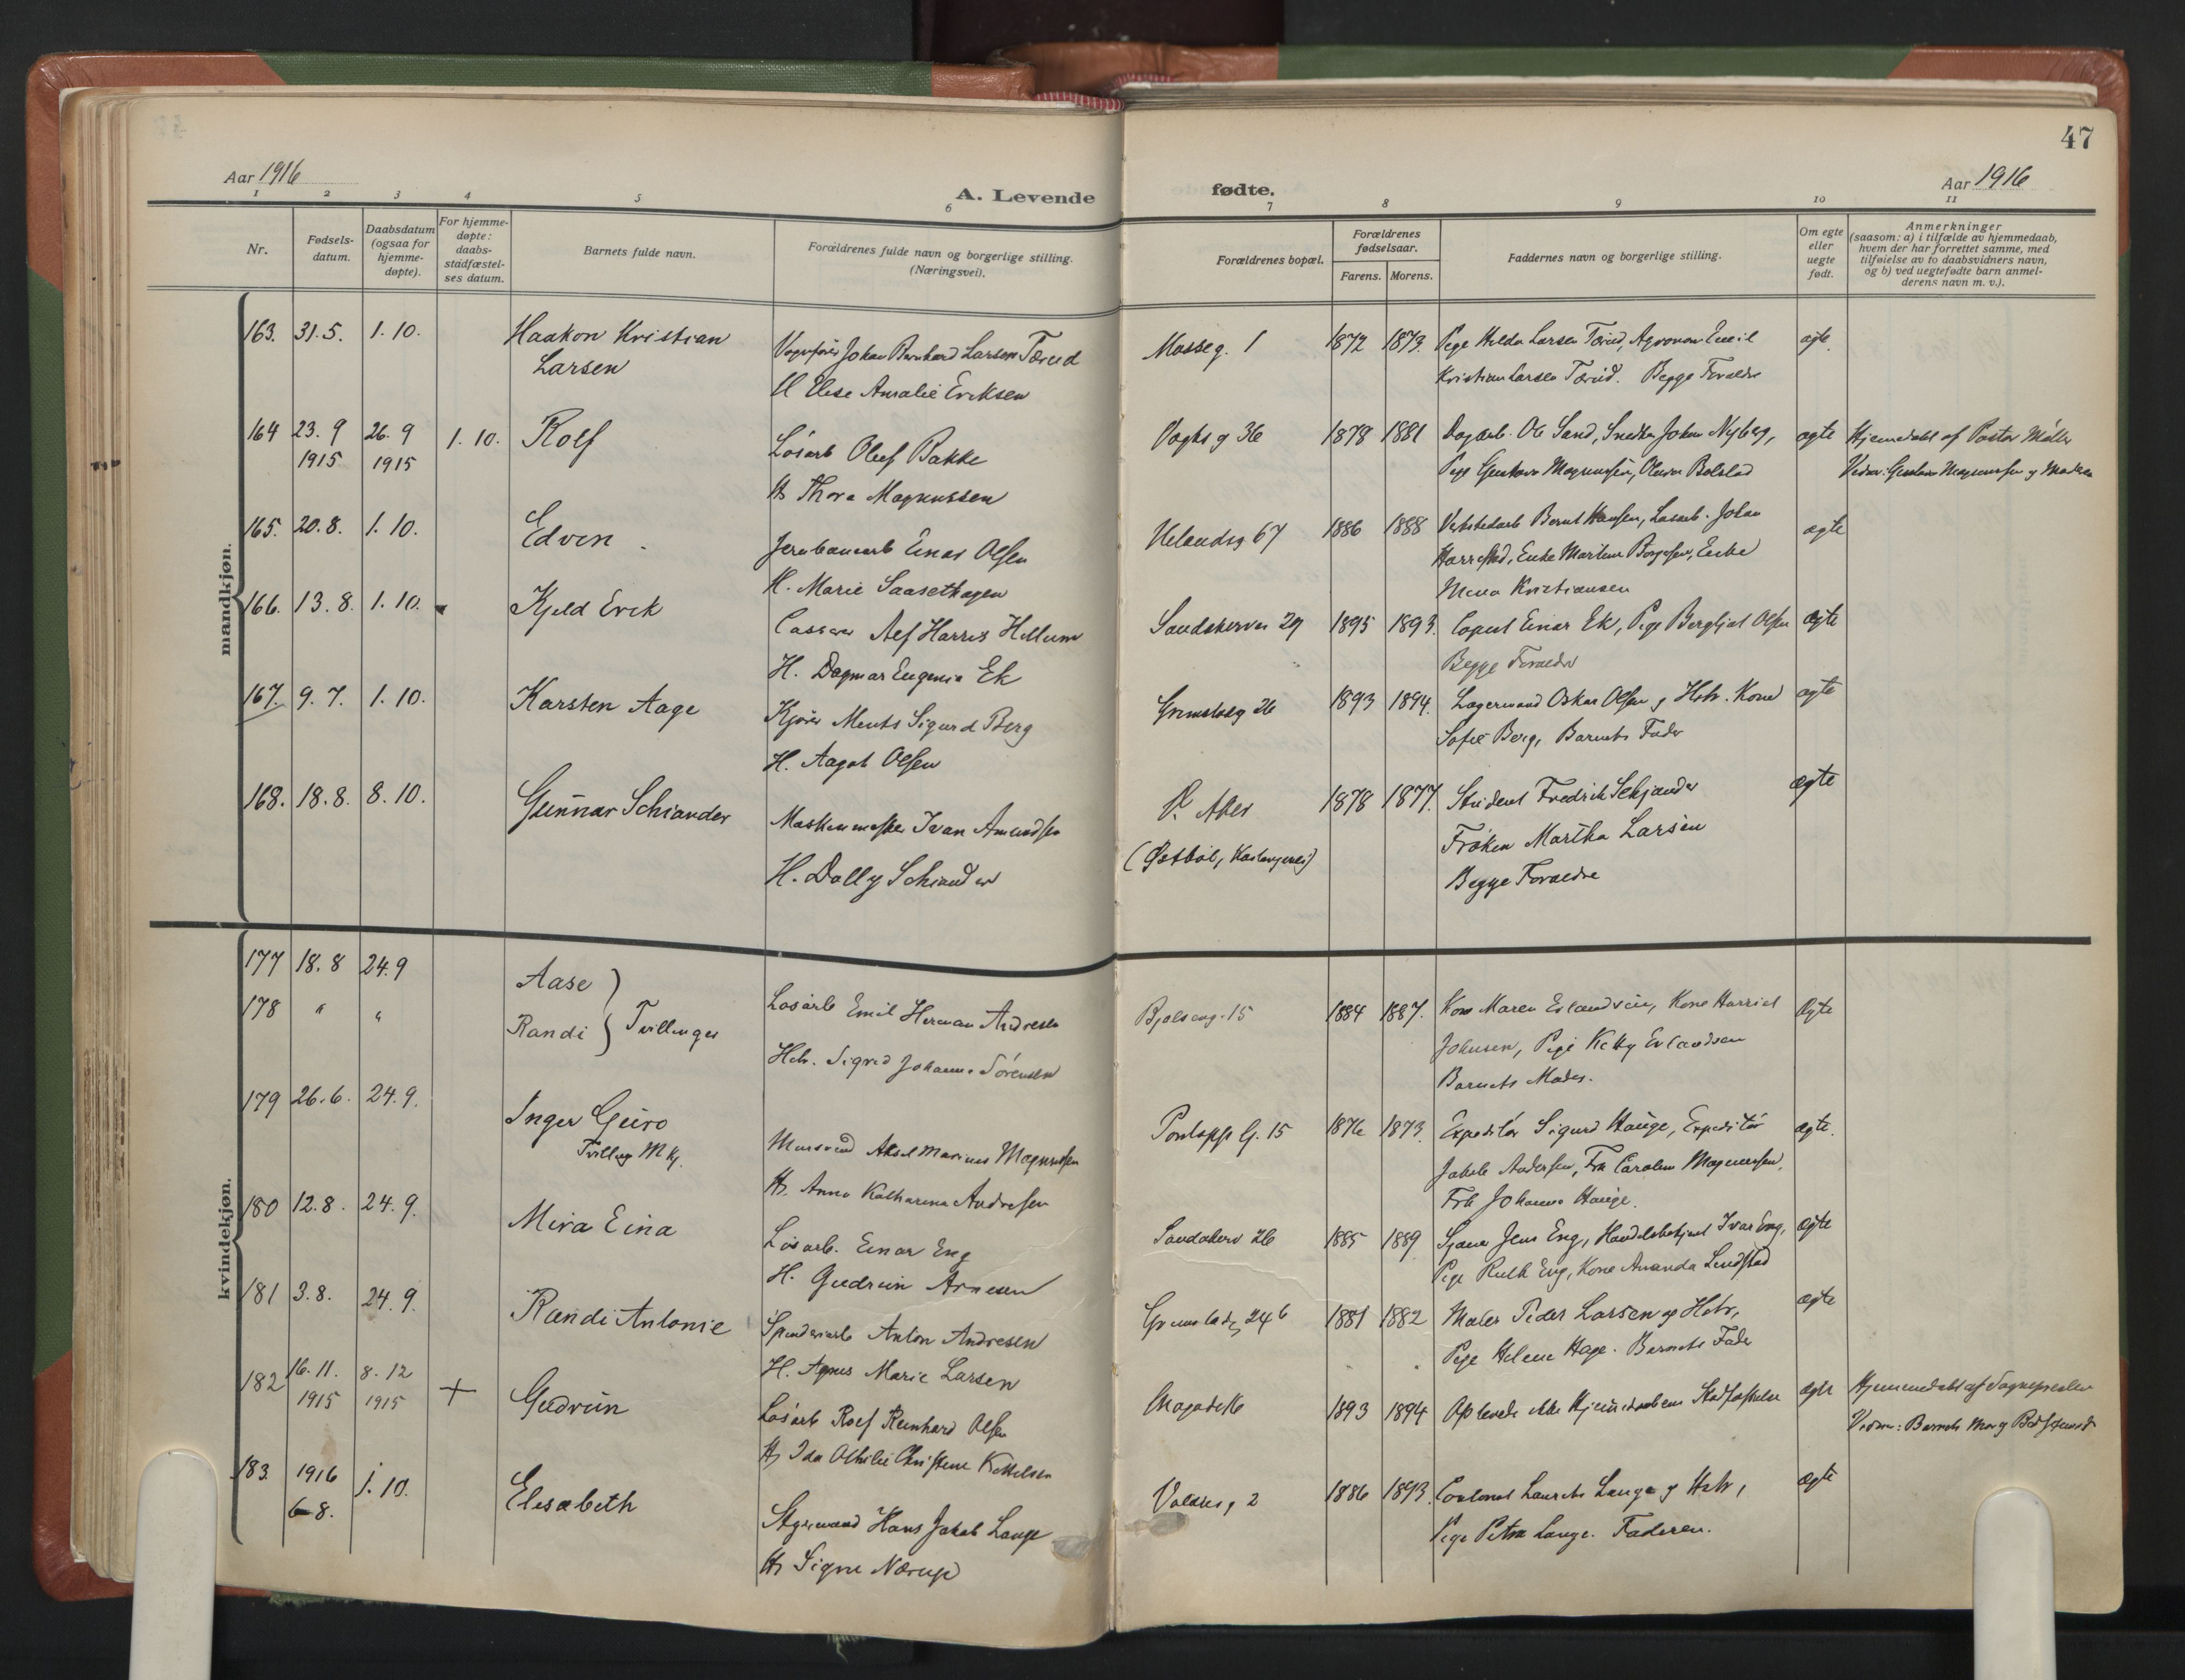 47
Aar 1916
A. Levende fødte.
Aar 1916
1 2 3 4 5 6 7 8 9 10 11
Nr.
Fødsels-
datum.
Daabsdatum
(ogsaa for
hjemme-
døpte).
For hjemme-
døpte:
daabs-
stadfæstel-
ses datum.
Barnets fulde navn.
Forældrenes fulde navn og borgerlige stilling.
(Næringsvei).
Forældrenes bopæl.
Forældrenes
fødselsaar.
Farens. Morens.
Faddernes navn og borgerlige stilling.
Om egte
eller
uegte
født.
Anmerkninger
(saasom: a) i tilfælde av hjemmedaab,
hvem der har forrettet samme, med
tilføielse av to daabsvidners navn,
og b) ved uegtefødte barn anmel-
derens navn m. v.).
mandkjøn.
163. 31.5. 1.10. Haakon Kristian
Larsen
Johan Bernhard Larsen Tærud
H Elise Amalie Eriksen
Mosseg. 1 1872 1873. Pige Hilda Larsen Tærud, Agronom Emil
Kristian Larsen Tærud. Begge Forældre
ægte
164 23.9 1915 26.9 1915 1.10. Rolf
Løsarb Oluf Bakke
H Thora Magnussen
Vogts g 36 1878 1881 Dagarb. Ole Sand, Snedker Johan Nyberg,
Pige Gunhara Magnussen, Oluva Bolstad
ægte Hjemdøbt af Pastor Møller
Vidner: Magnussen og Moderen
165. 20.8. 1.10. Edvin
Jernbanearb Einar Olsen
H. Marie Saasethagen
Uelandsg 67 1886 1888 Verkstedarb Bernt Hansen, Løsarb. Johan
Harrestad, Enke Martine Borgesen, Enke
Mina Kristiansen
ægte
166. 13.8. 1.10. Kjeld Erik
Alf Harris Hellum
H. Dagmar Eugenia Ek
Sandakerver 29 1895 1893. Einar Ek, Pige Bergljot Olsen
Begge Forældre
ægte
167. 9.7. 1.10. Karsten Aage
Kjører Sigurd Berg
H. Aagot Olsen
Grimstadg 26 1893 1894. Lagermand Oskar Olsen og Hstr. Kone
Sofie Berg, Barnets Fader
ægte
168. 18.8. 8.10. Gunnar Schiander
Maskinmester Ivan Amundsen
H. Dolly Schiander
V. Aker
(Østbøl, )
1878 1877. Student Fredrik Schjander
Frøken Martha Larsen
Begge Forældre
ægte
kvindekjøn.
177 18.8 24.9 Aase
178 " " Randi } Tvillinger
Løsarb Emil Herman Andresen
Hstr. Sigrid Johanne Sørensen
Bjølseng. 15 1884 1887. Kone Maren Erlandsen, Kone Harriet
Johnsen, Pige Ketty Erlandsen
Barnets Moder.
ægte
179 26.6. 24.9. Inger Guro
Tvilling M Kj.
Aksel Marinus Magnussen
H. Anna Katharina Andresen
Pontoppi G. 15 1876 1873. Expeditør Sigurd Hauge, Expeditør
Jakob Andersen, Frk Caroline Magnussen,
Frk Johanne Hauge.
ægte.
180 12.8. 24.9. Mira Eina
Løsarb. Einar Eng
H. Gudrun Arnesen
Sandakerv 26 1885 1889 Jens Eng, Handelsbetjent Ivar Eng,
Pige Ruth Eng, Kone Amanda Lindstad
ægte
181 3.8. 24.9. Randi Antonie
Spinderiarb Anton Andresen
H. Agnes Marie Larsen
Grimstadg 24 b 1881 1882 Maler Peder Larsen og Hstr,
Pige Helene Hage. Barnets Fader
ægte
182 16.11. 1915 8.12 1915 + Gudrun
Løsarb Rolf Reinhard Olsen
H. Ida Othilie Christine Kettelsen
1893 1894 Oplevede ikke Hjemmedaabens Stadfæstelse
ægte Hjemmedøbt af Sognepresten
Vidner: Barnets Mor og
183. 1916 6-8. 1.10. Elisabeth
Hans Jakob Lange
H. Signe Nærup
Valdresg 2 1886 1893. Laurits Lange og Hstr,
Pige Petra Lange. Faderen.
ægte